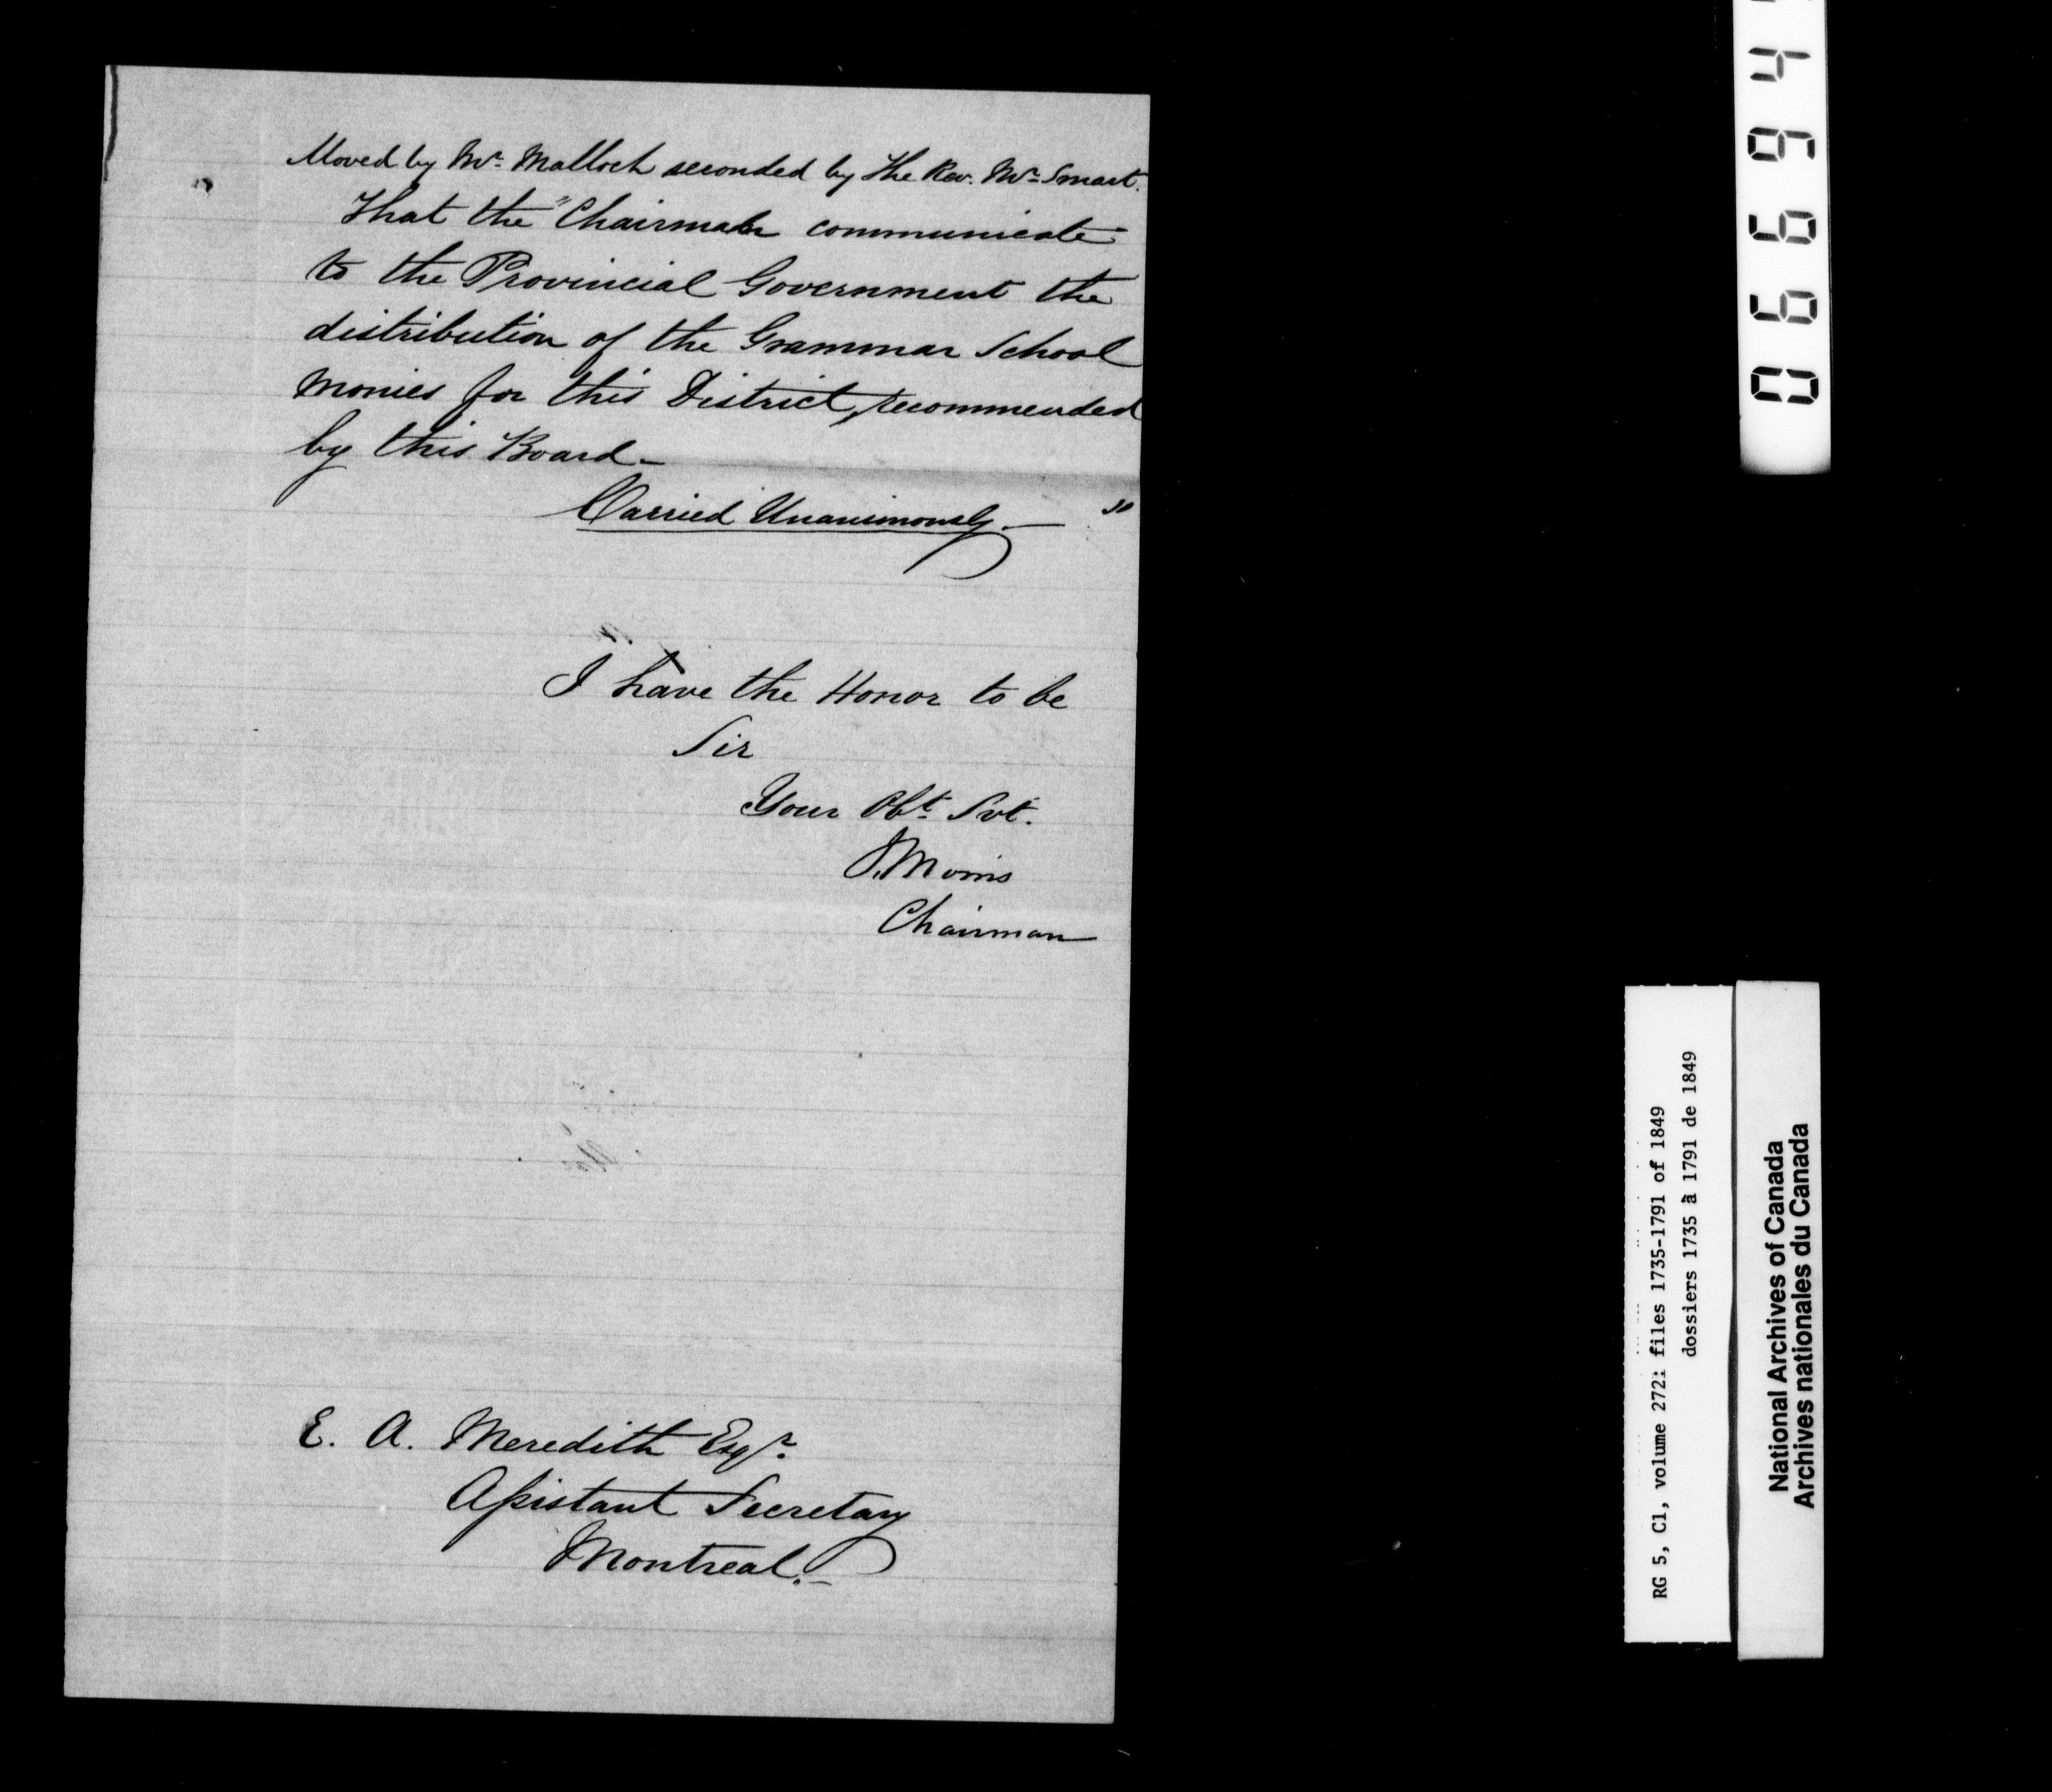 Moved by Mr. Malloch seconded by The Rev. Mr. Smart.
That the "Chairman communicate
to the Provincial Government the
distribution of the Grammar School
Monies for this District, recommended
by this Board_
Carried Unanimously._ "
I have the Honor to be
Sir
Your Obt. Svt.
J. Morris
Chairman
E. A. Meredith Esqr.
Assistant Secretary
Montreal._
06694
RG 5, C1, volume 272: files 1735-1791 of 1849
dossiers 1735 à 1791 de 1849
National Archives of Canada
Archives nationales du Canada